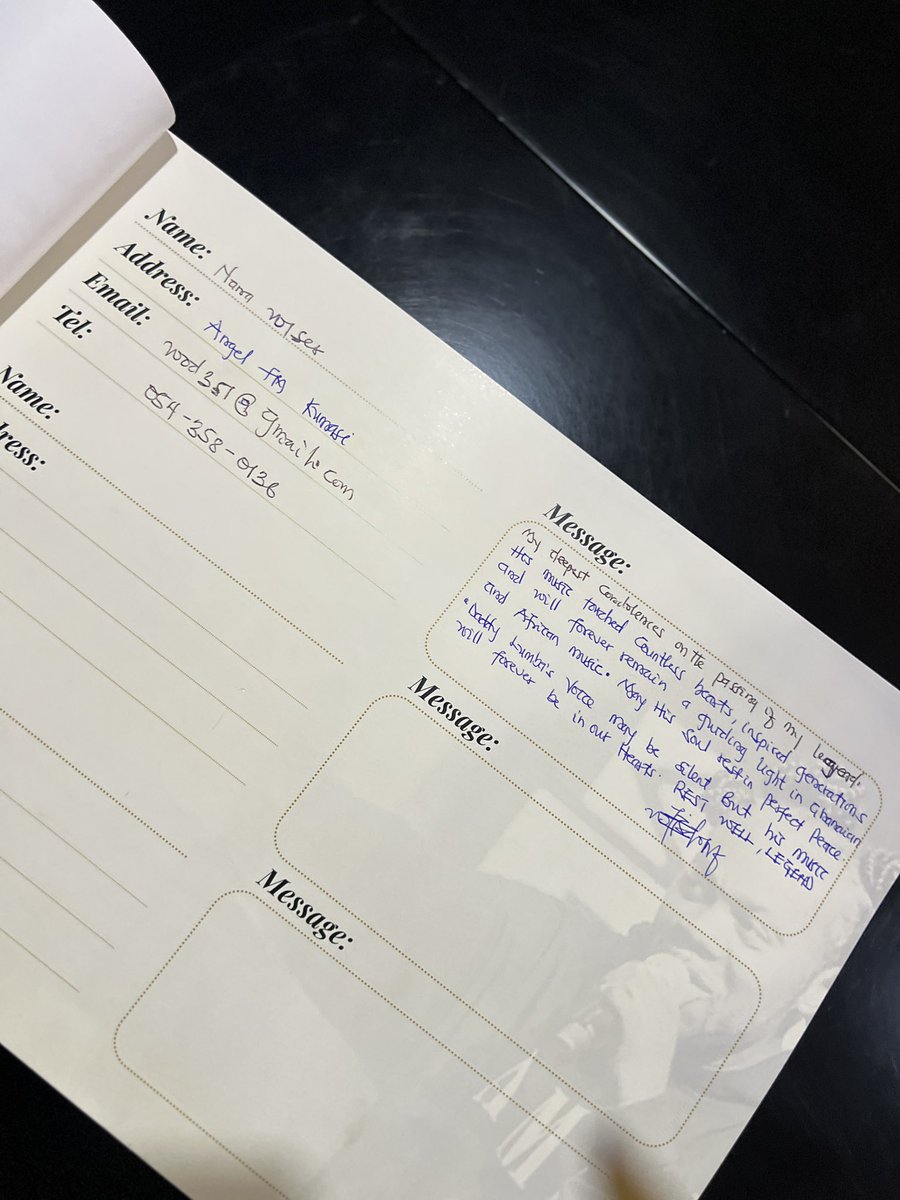 Name: Nana
Address: Angel FM Kumasi
Email: @gmail.com
Tel: 054-358-0136
Message:
My deepest Condolences on the passing of my legend.
His music touched Countless hearts, inspired generations
and will forever remain a guiding light in Ghanaian
and African music. May His soul rest in perfect Peace
"Daddy Lumba's Voice may be silent But his music
will forever be in our Hearts. REST WELL, LEGEND
Name:
ress:
Message:
Message:
AM